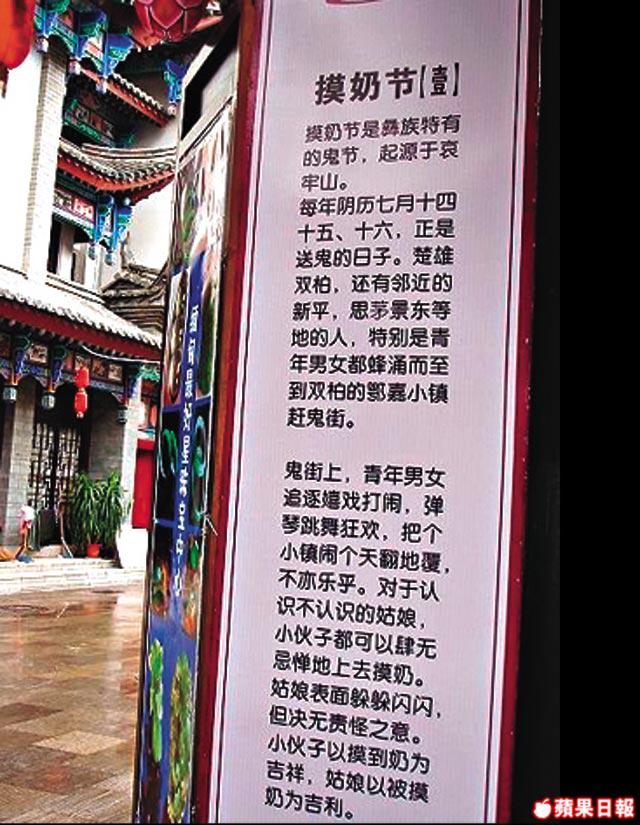 摸奶节【壹】
摸奶节是彝族特有
的鬼节，起源于哀
牢山。
每年阴历七月十四
十五、十六，正是
送鬼的日子。楚雄
双柏，还有邻近的
新平，思茅景东等
地的人，特别是青
年男女都蜂涌而至
到双柏的鄂嘉小镇
赶鬼街。
鬼街上，青年男女
追逐嬉戏打闹，弹
琴跳舞狂欢，把个
小镇闹个天翻地覆，
不亦乐乎。对于认
识不认识的姑娘，
小伙子都可以肆无
忌惮地上去摸奶。
姑娘表面躲躲闪闪，
但决无责怪之意。
小伙子以摸到奶为
吉祥，姑娘以被摸
奶为吉利。
蘋果日報